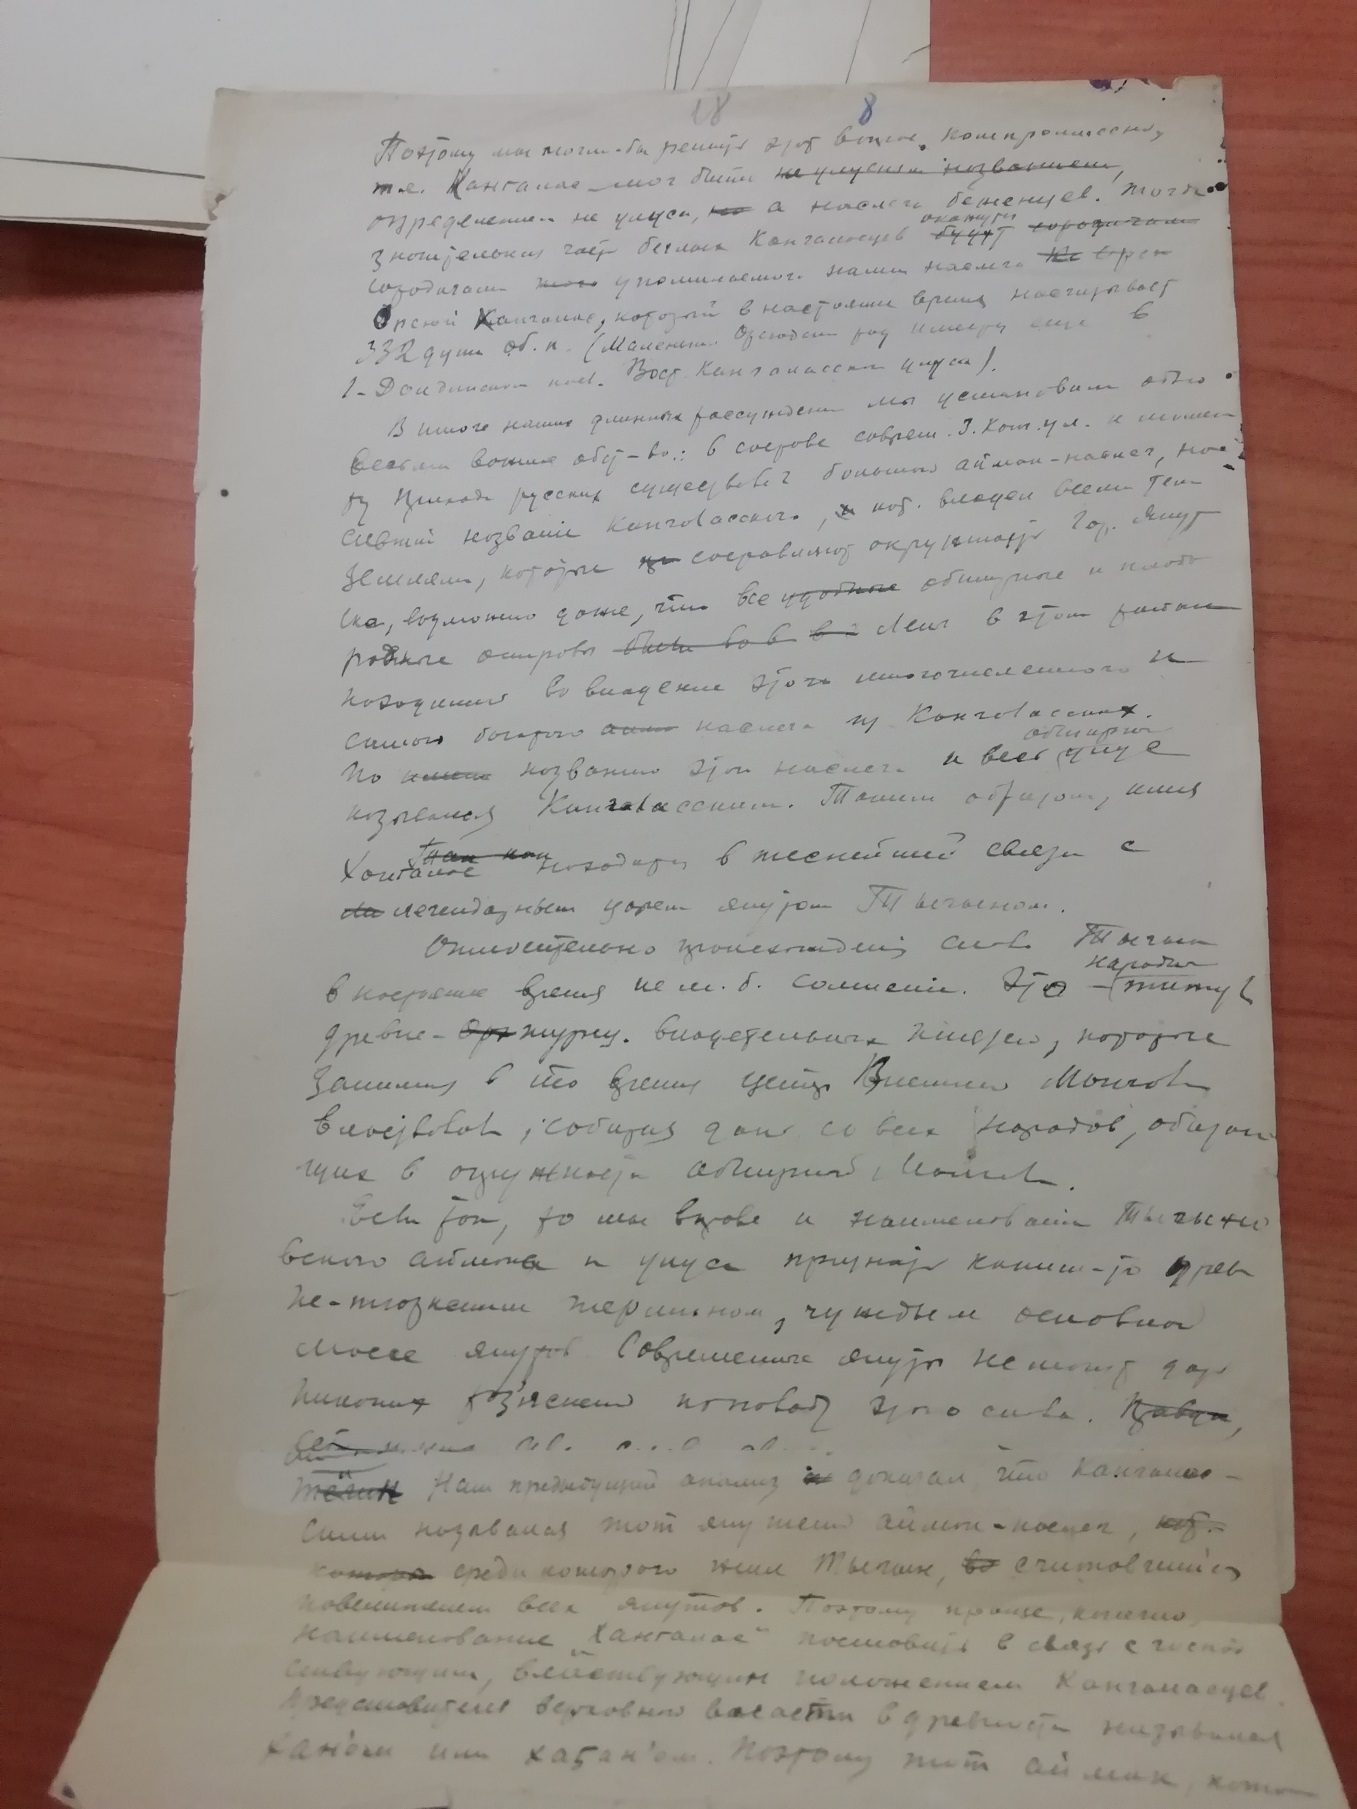 18 8
Поэтому мы могли-бы решить этот вопрос компромиссно,
т.е. Кангалас мог быть не улусным названием,
определением не улуса, но а наслега беженцев. Тогда
значительная часть беглых Кангаласцев окажутся будут сородичами
сородичами упоминаемого нами наслега
Орсюй Хангалас, который в настоящи время насчитывает
332 душ об. п. (Маленький род имеется еще в
1-Дойдинском насл. Вост. Кангаласском улуса).
В итоге наших длинных рассуждений мы установили одно
весьма важное обст-во: в составе соврем. З. Кан. ул. к момен
ту прихода русских существовал большой аймак-наслег, но
сивший название Кангаласского, и кот. владел всеми теми
землями, которые составляют окрестности гор. Якут
ска, возможно даже, что все удобные обширные и плодо
родные острова были Лены в этом районе
находились во владении этого многочисленного и
самого богатого наслега из Кангаласских.
По имени названию этого наслега и весь обширный улус
назывался Кангаласским. Таким образом, имя
Хангалас находится в теснейшей связи с
легендарным царем якутом Тыгыном.
Относительно происхождения слова Тыгын
в настоящее время не м. б. сомнений. Это – народный титул
древне- владетельных князей, которые
занимая в то время центр Внешней Монголии
властвовали, собирая дань со всех народов, обитаю
щих в окружности обширной Монголии.
Если так, то мы вправе и наименование Тыгынов
ского аймака и улуса признать каким-то древ
не- термином, чуждым основной
массе якутов. Современные якуты не могут дать
никаких раз'яснений поповоду этого слова. Правда,
Наш предыдущий анализ доказал, что Кангалас-
ским назывался тот якутский аймак-наслег, кот.
которого среди которого жил Тыгын, считавшийся
повелителем всех якутов. Поэтому проще, конечно,
наименование „Хангалас" поставить в связь с госпо
ствующим, положением Кангаласцев.
Представители верховной власти в древности назывался
хан'ом или хаҕан'ом. Поэтому тот аймак, кото